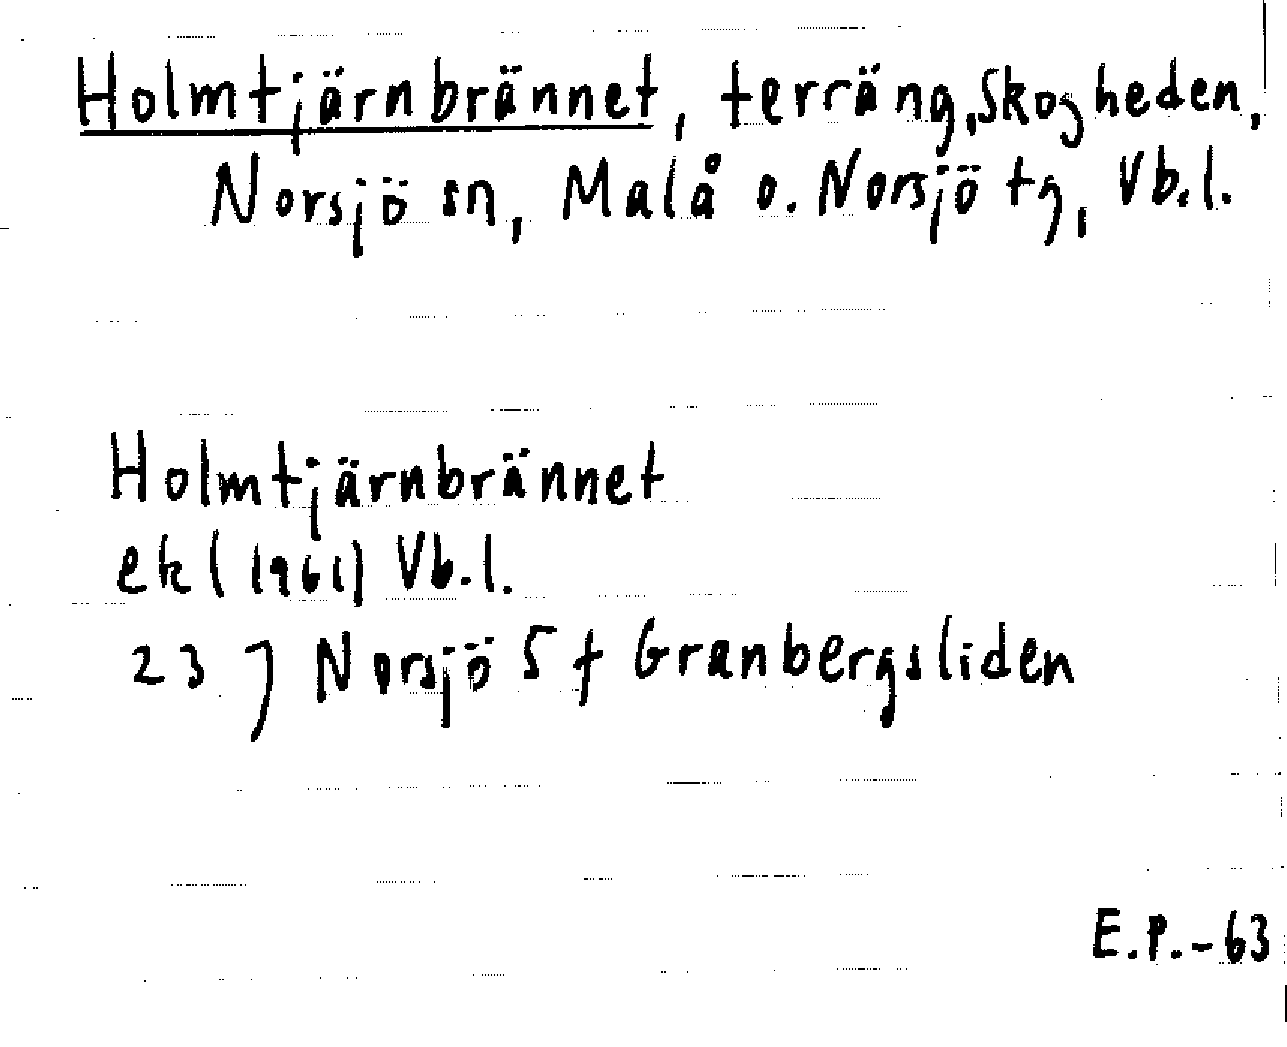 Holmtjärnbrännet, terräng, Skogheden,
Norsjö sn, Malå o. Norsjö tg, Vb.l.
Holmtjärnbrännet
ek (1961) Vb.l.
23 J Norsjö 5 f Granbergsliden
E.P.-63